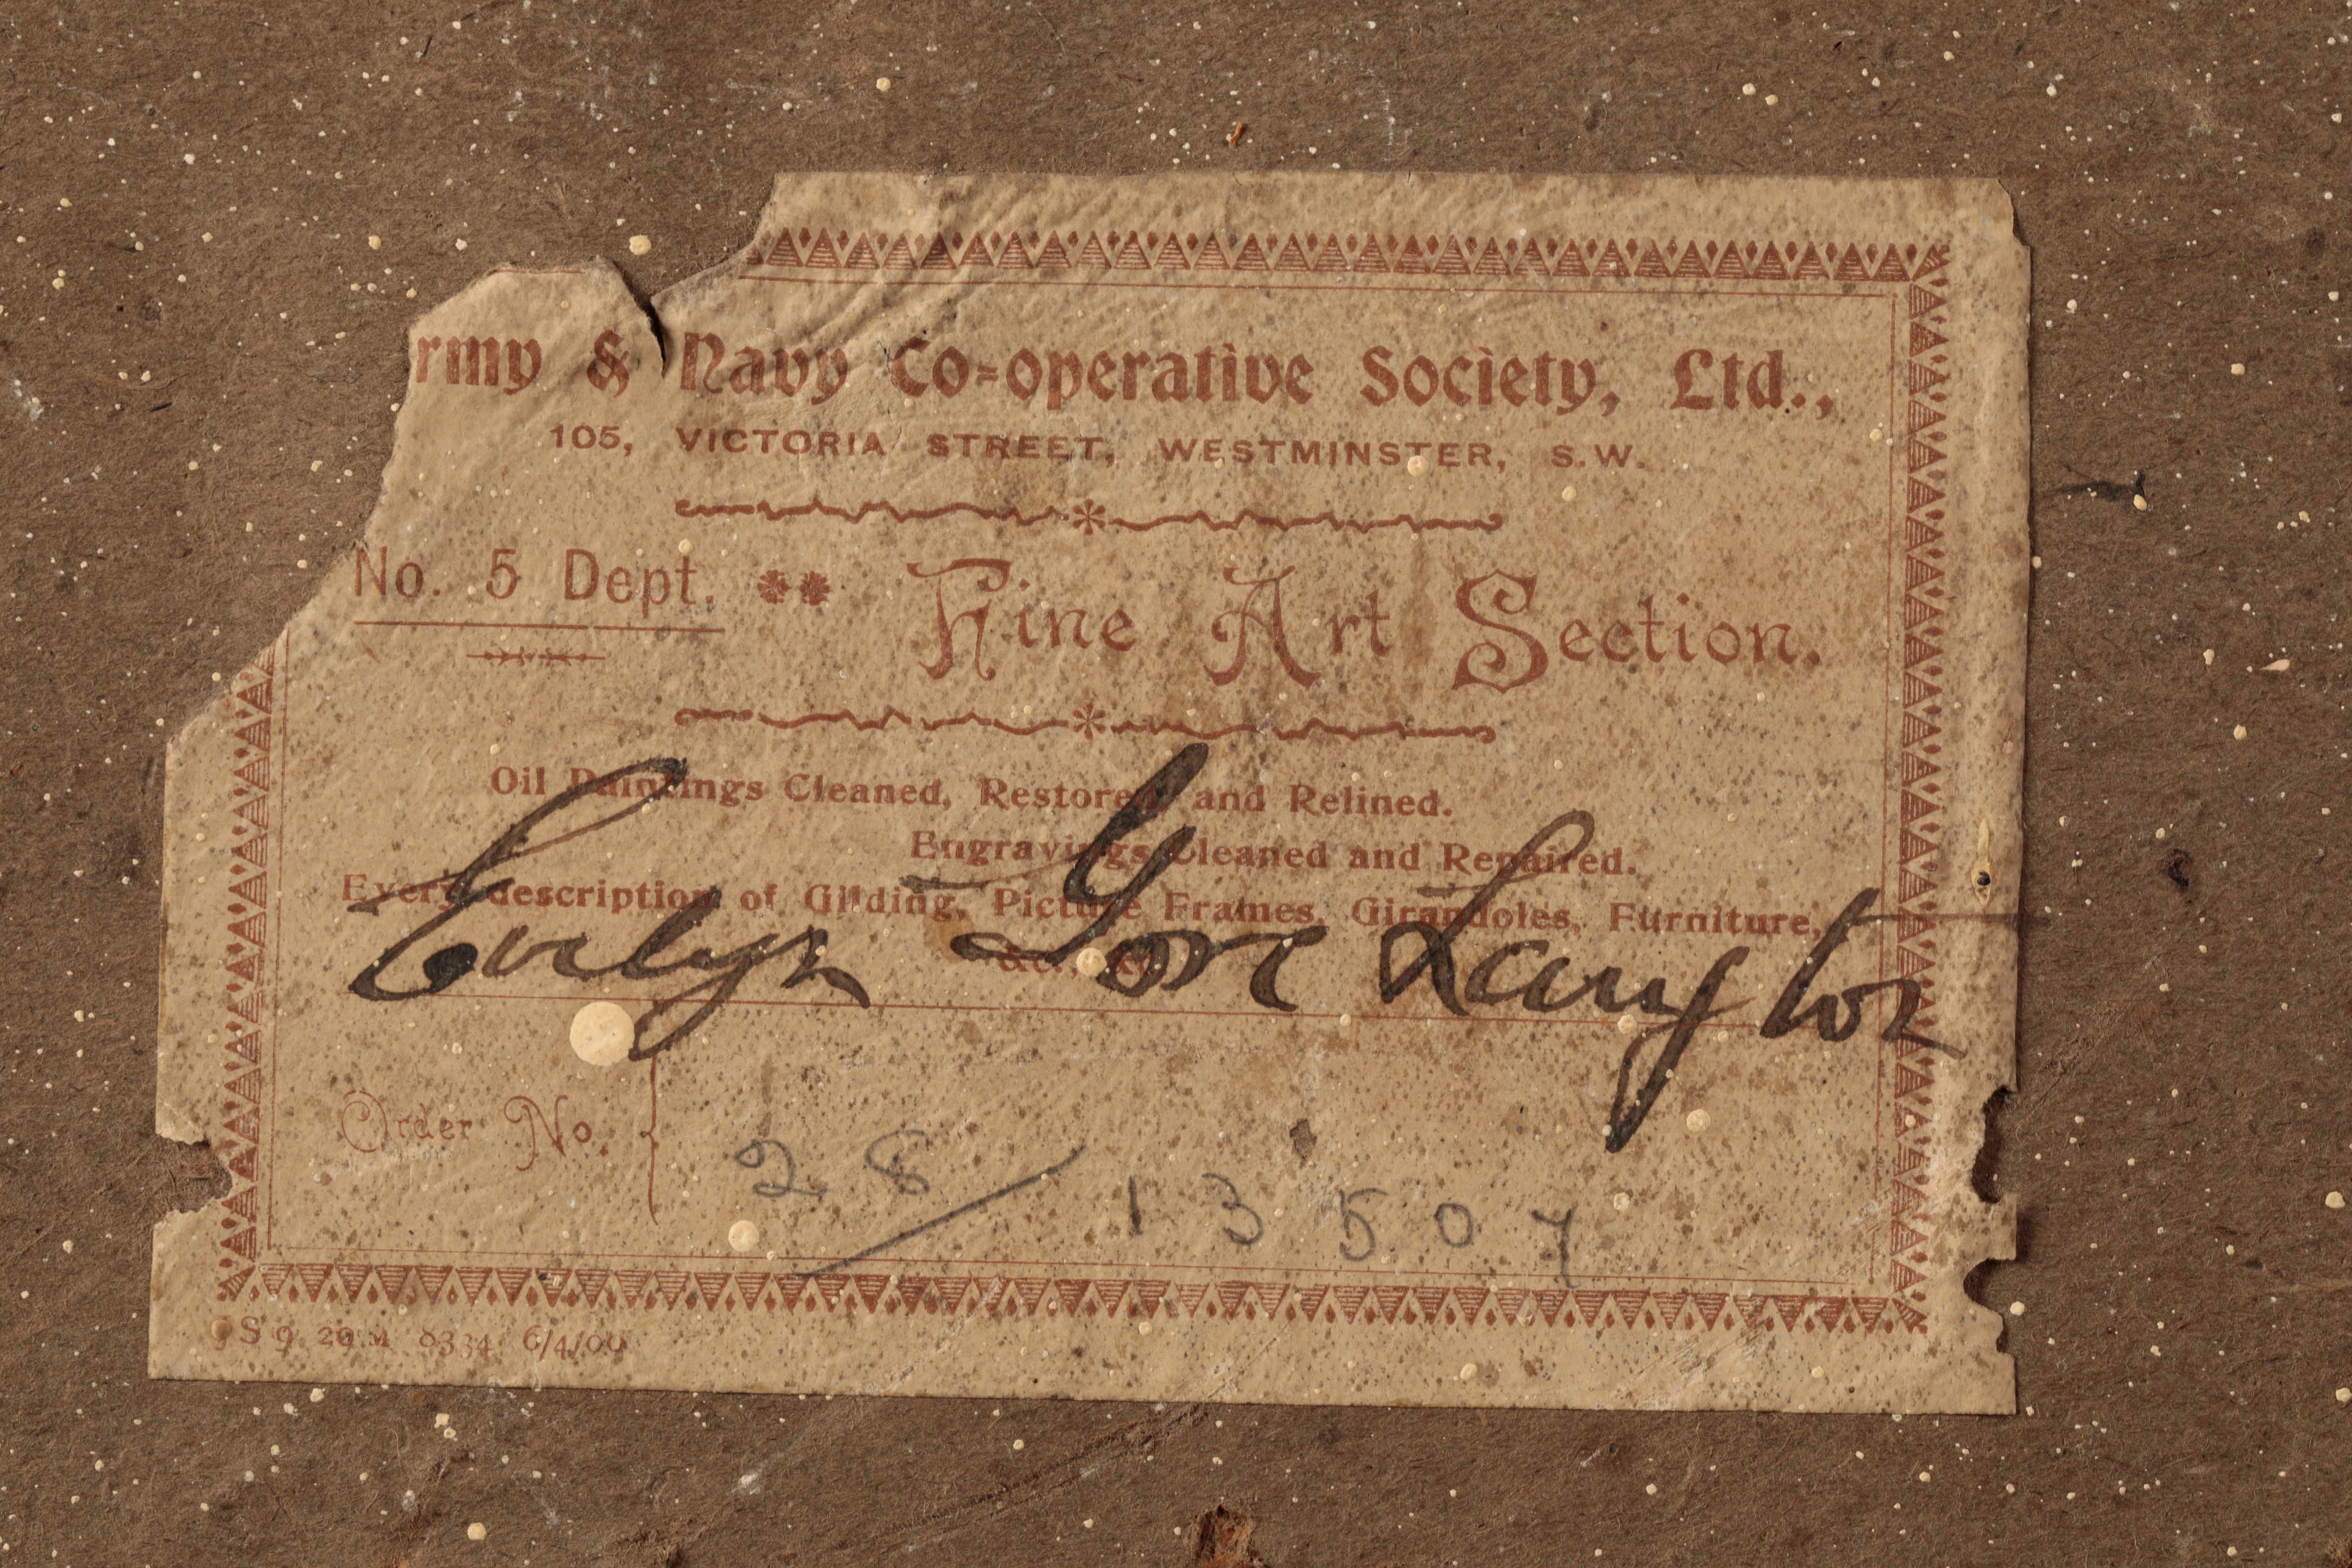 rmy & Navy Co=operative Society, Ltd.,
105, VICTORIA STREET, WESTMINSTER, S.W.
No. 5 Dept. ** Fine Art Section.
Oil Paintings Cleaned, Restored and Relined.
Engravings Cleaned and Repaired.
Every description of Gilding, Picture Frames, Girandoles, Furniture,
&c., &c.
Evelyn Gore Langton
Order No.
28/13507
S 9 20 M 8334 6/4/00